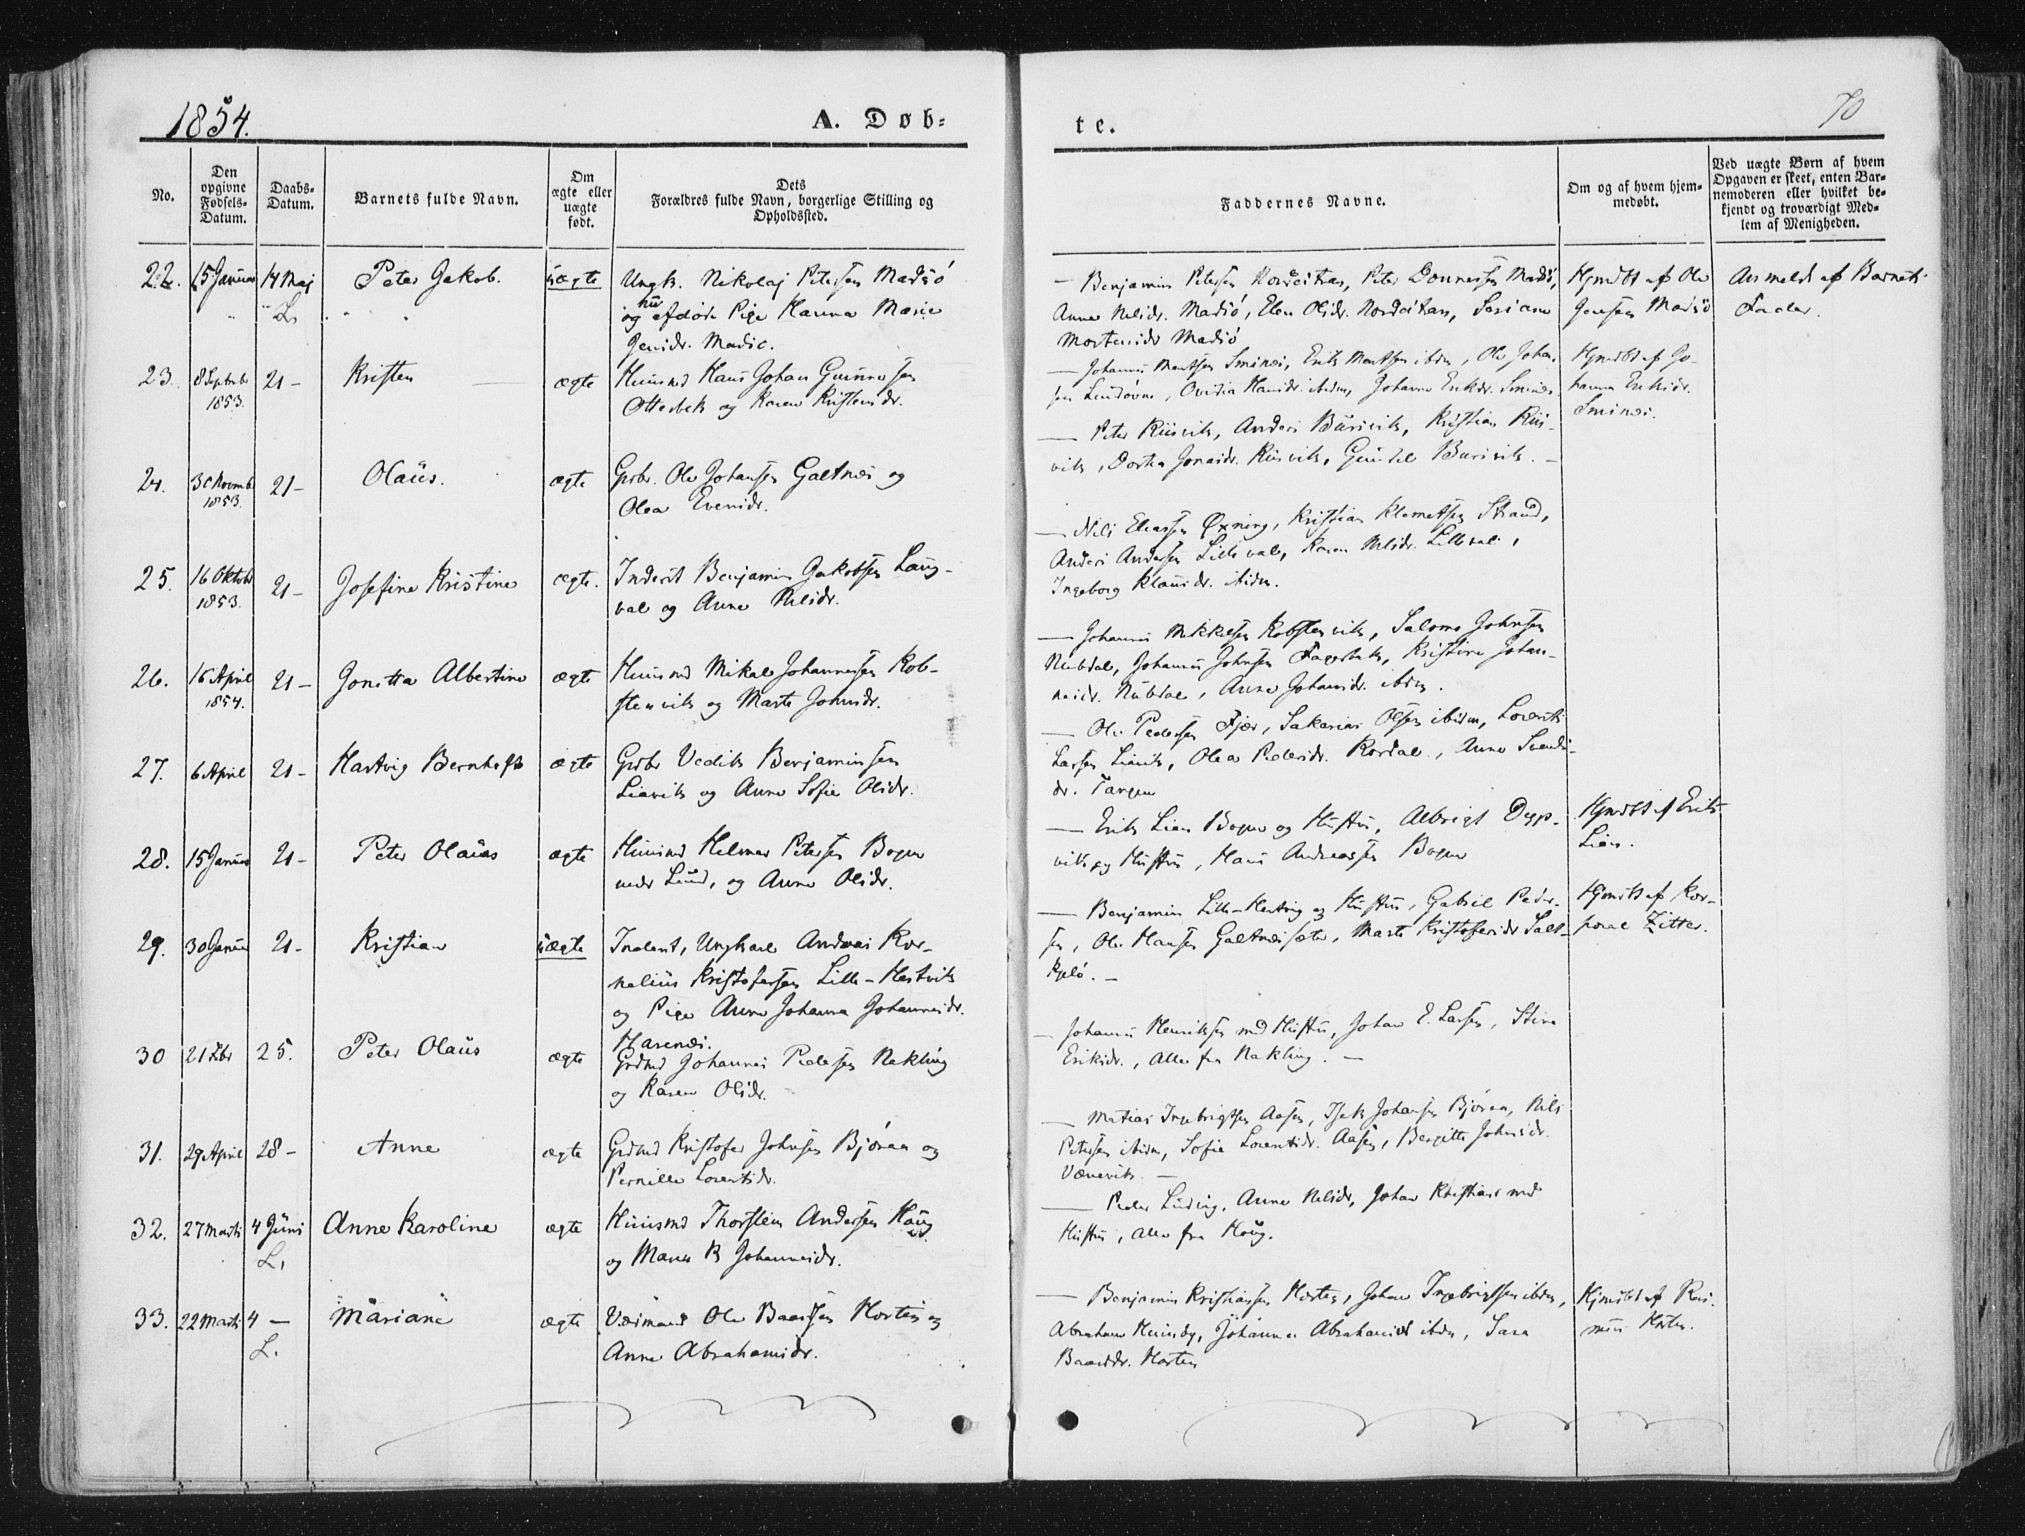 1854.
A. Døb-
te.
70
No.
Den opgivne Fødsels-Datum.
Daabs-Datum.
Barnets fulde Navn.
Om ægte eller uægte født.
Dets Forældres fulde Navn, borgerlige Stilling og Opholdssted.
Faddernes Navne.
Om og af hvem hjem-medøbt.
Ved uægte Børn af hvem Opgaven er skeet, enten Bar-nemoderen eller hvilket be-kjendt og troværdigt Med-lem af Menigheden.
22. 15 Januar 14 Maj Peter Jakob. uægte Ungk. Nikolaj Petersen Madsö
L. og nu afdöde Pige Hanna Marie
Jensdr. Madsö.
— Benjamin Petersen Peter Madsö,
Anne Nelsdr. Madsö, Elen Olsdr.
Mortensdr Madsö
Hjmdbt af Ole
Jensen Madsö
Anmeldt af Barnets
Fader.
23. 8 Septbr 1853. 21 – Kristen ægte Huusmd Hans Johan Gunnesen
Otterbek og Karen Kristensdr.
— Johannes Smines, Erik ibdm, Ole Johan-
sen Lundövne, Ovidia Hansdr. ibidm, Johanna Eriksdr. Smines
Hjmdbt af Jo-
hanna Eriksdr.
Smines.
24. 30 Novemb 1853. 21 – Olaus. ægte Grbr. Ole Johansen Galtnes og
Olea Evensdr.
— Peter Riisvik, Anders Bursvik, Kristian Riis-
vik, Dortea Jonasdr. Riisvik, Bursvik. –
25. 16 Oktobr 1853. 21 – Josefine Kristine ægte. Inderst Benjamin Jakobsen Laug-
val og Anne Nelsdr.
— Nils Eliassen Öxning, Kristian Klemetsen Strand,
Anders Andersen Lilleval, Karen Nelsdr. Lilleval,
Ingeborg Klausdr. ibidm.
26. 16 April 1854. 21 – Jonetta Albertine ægte Huusmd Mikal Johannessen Kob-
stenvik og Marte Johnsdr.
— Johannes Mikkelsen Kobstenvik, Salomo Johnsen
Nubdal, Johannes Johnsen Fagerbak, Kristine Johan-
nesdr. Nubdal, Anne Johansdr. ibdm.
27. 6 April 21 – Hartvig Bernhoft ægte Grbr Vedik Benjaminsen
Liavik og Anne Sofie Olsdr.
— Ole Pedersen Fjær, Sakarias Olsen ibidm, Lorents
Larsen Liavik, Olea Pedersdr. Rordal, Anne Svends-
dr. Tangen
28. 15 Januar 21 – Peter Olaus ægte Huusmd Helmer Petersen Bogen
under Lund, og Anne Olsdr.
— Erik Lian Bogen og Hustru, Albrigt Dyp-
vik og Hustru, Hans Andreassen Bogen
Hjmdbt af Erik
Lian.
29. 30 Januar 21 – Kristian uægte Inderst, Ungkarl Andreas Kor-
nelius Kristofersen Lille-Hestvik
og Pige Anne Johanna Johannesdr.
Harsnes.
— Benjamin Lille-Hestvig og Hustru, Gabriel Peder-
sen, Ole Hansen Galtnessæter, Marte Kristofersdr Salt-
kjelö. –
Hjmdbt af Kor-
poral Zitter.
30 21 Feb 25. Peter Olaus ægte Grdmd Johannes Pedersen Nakling
og Karen Olsdr.
— Johannes Henriksen med Hustru, Johan E. Larsen, Stine
Eriksdr., Alle fra Nakling. –
31. 29 April 28 – Anne ægte Grdmd Kristofer Johnsen Björaa og
Pernille Lorentsdr.
— Matias Ingebrigtsen Aasen, Isak Johansen Björaa, Nils
Petersen ibidm, Sofie Lorentsdr. Aasen, Bergitte Johnsdr.
Værevik. –
32. 27 Marts 4 Juni Anne Karoline ægte Huusmd Thorstein Andersen Haug
L. og Maren B Johannesdr.
— Peder Luding, Anne Nelsdr, Johan Kristians med
Hustru, Alle fra Haug.
33. 22 Marts 4 – Mariane ægte Ole Baardsen Horten og
L. Anne Abrahamsdr.
— Benjamin Kristiansen Horten, Johan Ingebrigtsen ibdm,
Abraham Johanna Abrahamsdr ibdm, Sara
Baardsdr. Horten
Hjmdbt af Ras-
mus Horten.